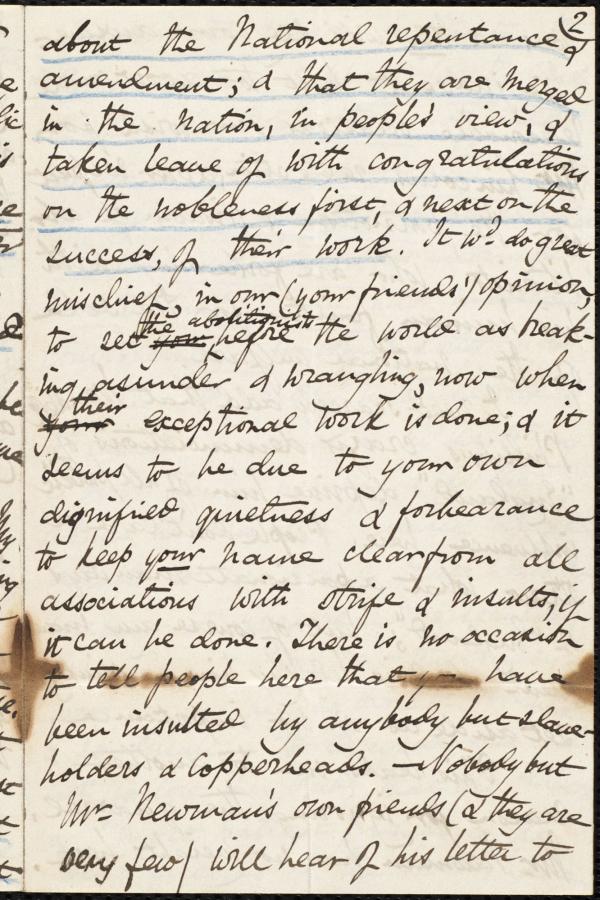 2
about the National repentance &
amendment; & that they are merged
in the nation, in people's view, &
taken leave of with congratulations
on the nobleness first, & next on the
success, of their work. It wd. do great
mischief, in our (your friends') opinion,
the abolitionists
to set your before the world as break-
ing asunder & wrangling, now when
their
your exceptional work is done; & it
seems to be due to your own
dignified quietness & forbearance
to keep your name clear from all
associations with strife & insults, if
it can be done. There is no occasion
to tell people here that y— have
been insulted by anybody but slave-
holders & Copperheads. — Nobody but
Mr. Newman's own friends (& they are
very few) will hear of his letter to